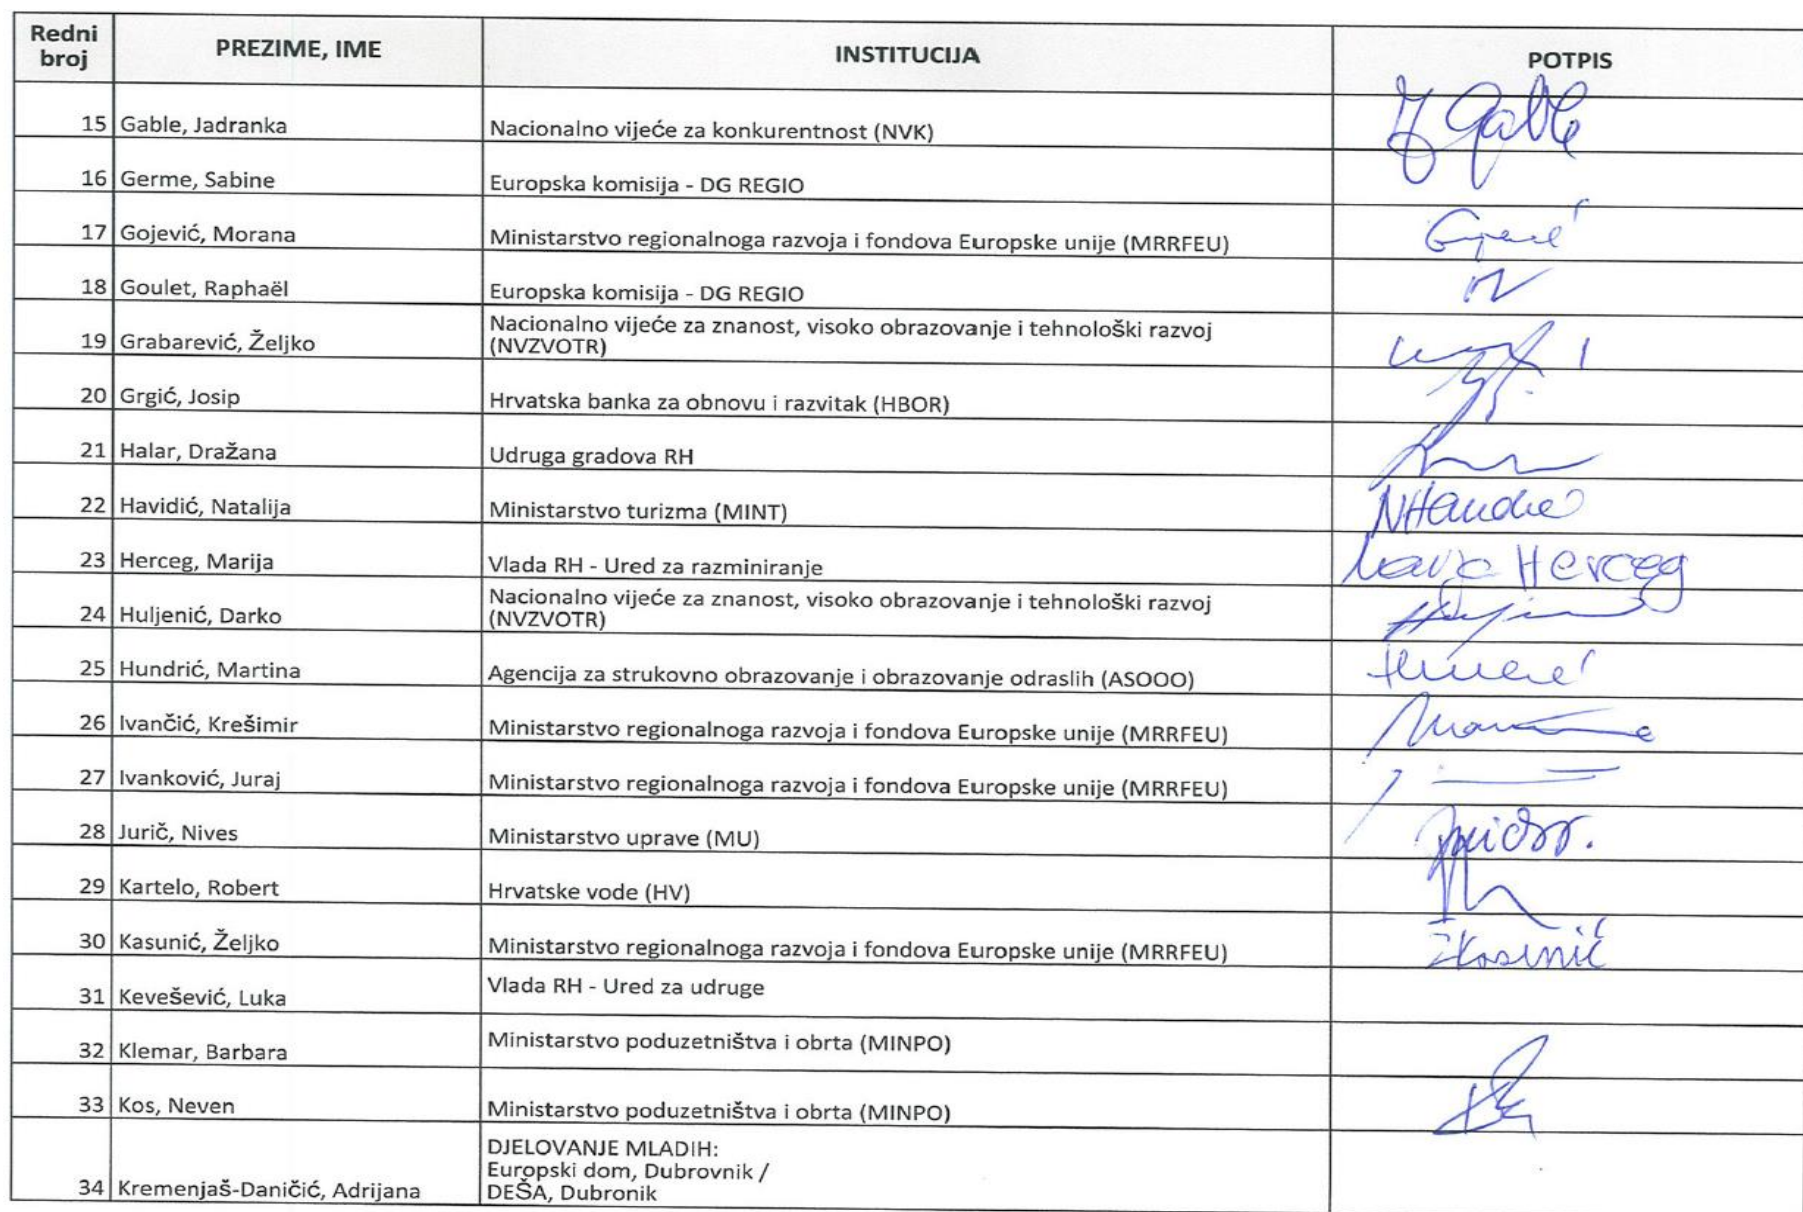 Redni broj PREZIME, IME INSTITUCIJA POTPIS
15 Gable, Jadranka Nacionalno vijeće za konkurentnost (NVK) Gable
16 Germe, Sabine Europska komisija - DG REGIO
17 Gojević, Morana Ministarstvo regionalnoga razvoja i fondova Europske unije (MRRFEU)
18 Goulet, Raphaël Europska komisija - DG REGIO
19 Grabarević, Željko Nacionalno vijeće za znanost, visoko obrazovanje i tehnološki razvoj
(NVZVOTR)
20 Grgić, Josip Hrvatska banka za obnovu i razvitak (HBOR)
21 Halar, Dražana Udruga gradova RH
22 Havidić, Natalija Ministarstvo turizma (MINT)
23 Herceg, Marija Vlada RH - Ured za razminiranje Marija Herceg
24 Huljenić, Darko Nacionalno vijeće za znanost, visoko obrazovanje i tehnološki razvoj
(NVZVOTR)
25 Hundrić, Martina Agencija za strukovno obrazovanje i obrazovanje odraslih (ASOOO)
26 Ivančić, Krešimir Ministarstvo regionalnoga razvoja i fondova Europske unije (MRRFEU)
27 Ivanković, Juraj Ministarstvo regionalnoga razvoja i fondova Europske unije (MRRFEU)
28 Jurič, Nives Ministarstvo uprave (MU)
29 Kartelo, Robert Hrvatske vode (HV)
30 Kasunić, Željko Ministarstvo regionalnoga razvoja i fondova Europske unije (MRRFEU)
31 Kevešević, Luka Vlada RH - Ured za udruge
32 Klemar, Barbara Ministarstvo poduzetništva i obrta (MINPO)
33 Kos, Neven Ministarstvo poduzetništva i obrta (MINPO)
34 Kremenjaš-Daničić, Adrijana DJELOVANJE MLADIH:
Europski dom, Dubrovnik /
DEŠA, Dubronik